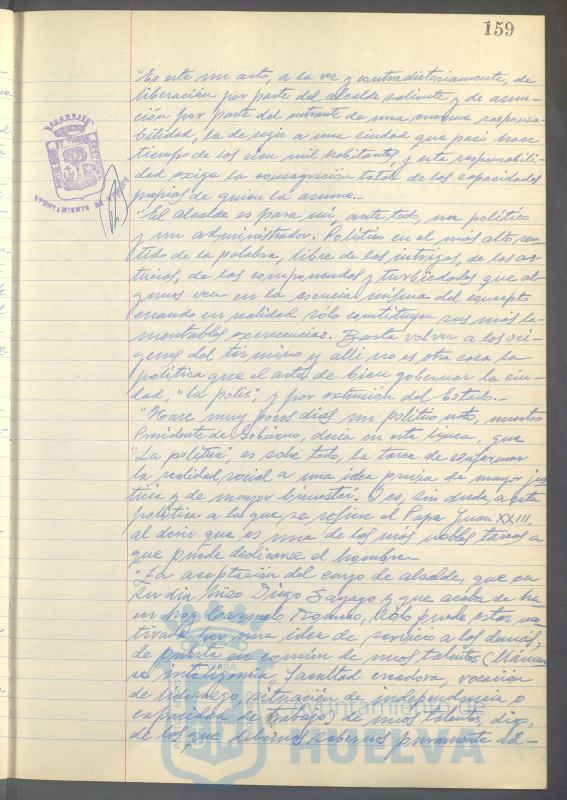 159
"Es este un acto, a la vez y contradictoriamente, de
liberación por parte del alcalde saliente y de asun-
ción por parte del entrante de una enorme responsa-
bilidad, la de regir a una ciudad que pasó hace
tiempo de los cien mil habitantes, y esta responsabili-
dad exige la consagración total de las capacidades
propias de quien la asume.-
"El alcalde es para mí, ante todo, un político
y un administrador. Político en el más alto sen-
tido de la palabra, libre de las intrigas, de las as-
tucias, de las componendas y turbiedades que al-
gunos ven en la esencia misma del concepto
cuando en realidad sólo constituyen sus más la-
mentables excrecencias. Basta volver a los orí-
genes del término y allí no es otra cosa la
política que el arte de bien gobernar la ciu-
dad, "la polis", y por extensión del Estado.-
"Hace muy pocos días un político nato, nuestro
Presidente de Gobierno, decía en esta línea, que
"La política, es sobre todo, la tarea de conformar
la realidad social a una idea precisa de mayor jus-
ticia y de mayor bienestar. Y es, sin duda, a esta
política a la que se refiere el Papa Juan XXIII,
al decir que es una de las más nobles tareas a
que puede dedicarse el hombre.-
"La aceptación del cargo de alcalde, que en
su día hizo Diego Sayago y que acaba de ha-
cer hoy Carmelo Romero, sólo puede estar mo-
tivada por una idea de servicio a los demás,
de puesta en común de unos talentos (llámen-
se inteligencia, facultad creadora, vocación
de liderazgo, situación de independencia o
capacidad de trabajo) de unos talentos, digo,
de los que debemos sabernos puramente ad-
AYUNTAMIENTO DE
Ayuntamiento de
HUELVA